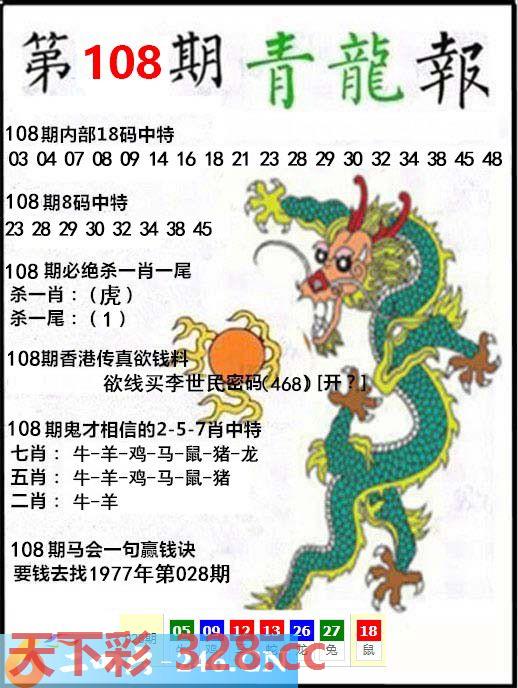 第108期青龍報
108期内部18码中特
03 04 07 08 09 14 16 18 21 23 28 29 30 32 34 38 45 48
108期8码中特
23 28 29 30 32 34 38 45
108期必绝杀一肖一尾
杀一肖：(虎)
杀一尾：(1)
108期香港传真欲钱料
欲线买李世民密码(468)[开?]
108期鬼才相信的2-5-7肖中特
七肖：牛-羊-鸡-马-鼠-猪-龙
五肖：牛-羊-鸡-马-鼠-猪
二肖：牛-羊
108期马会一句赢钱诀
要钱去找1977年第028期
05 09 12 13 26 27 18
蛇 龙 兔 鼠
天下彩-328.cc